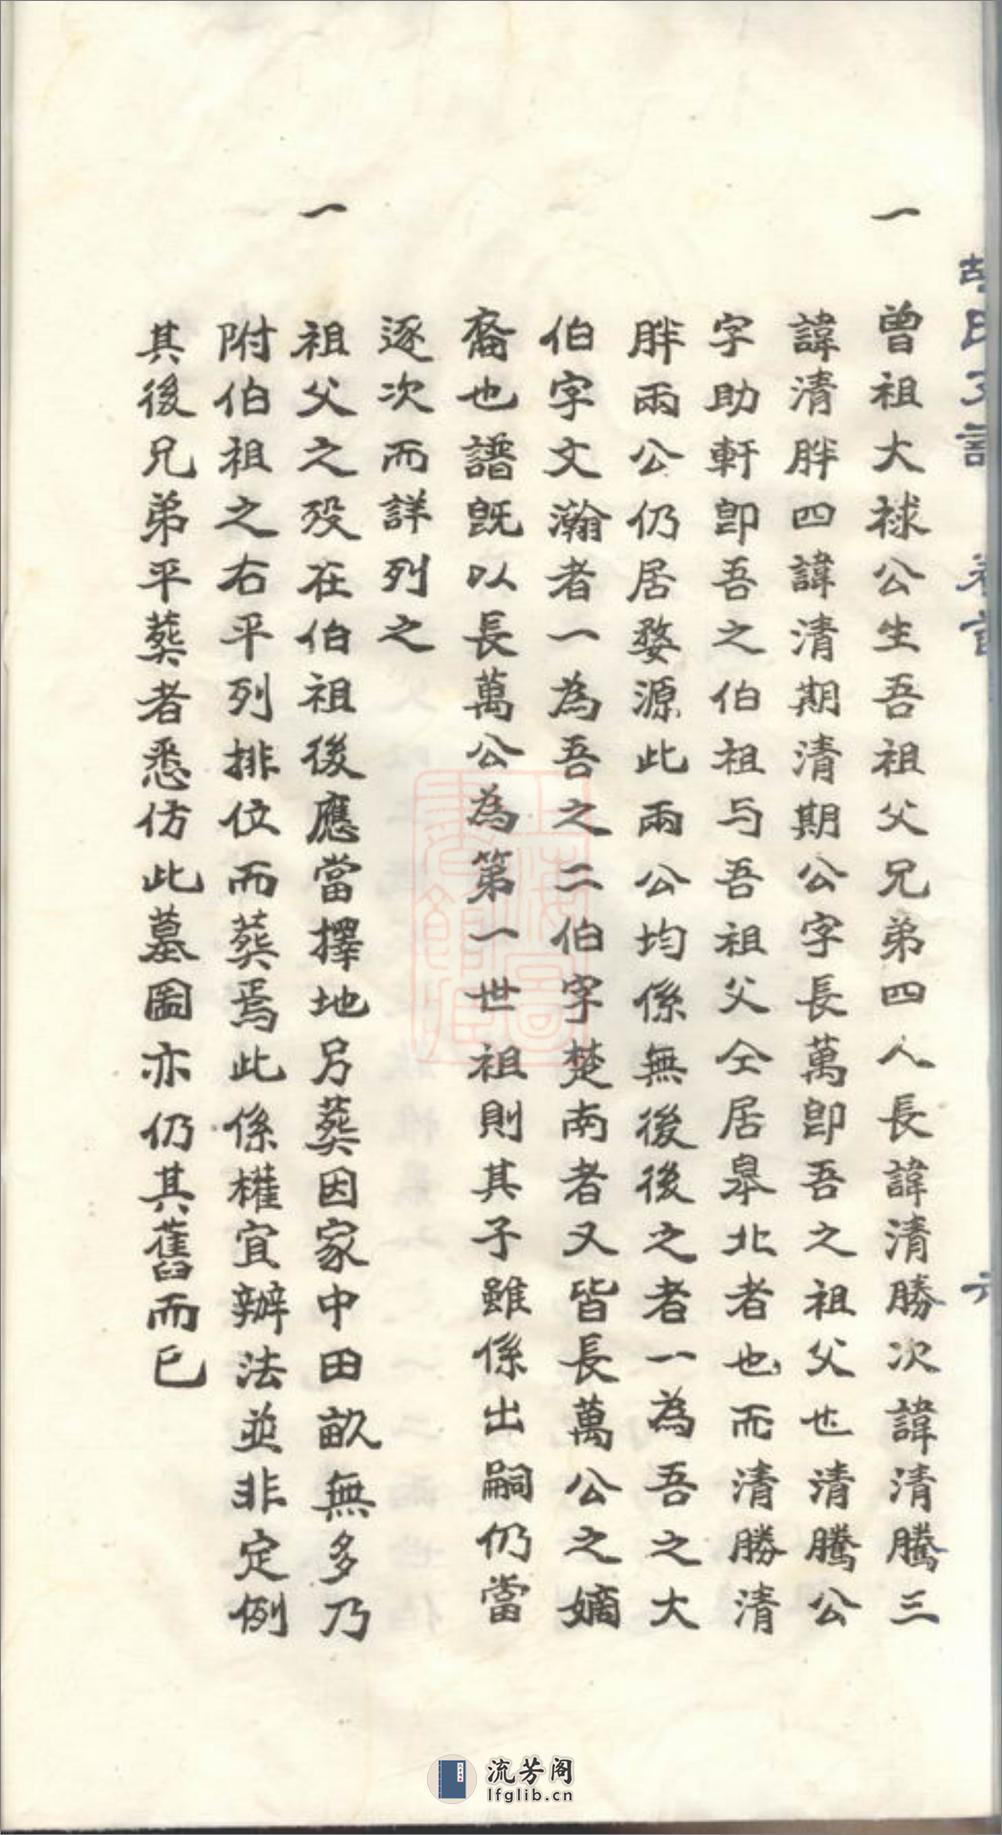 一
曾祖大禄公生吾祖父兄弟四人長諱清勝次諱清騰三
諱清胖四諱清期清期公字長萬卽吾之祖父也清騰公
字助軒卽吾之伯祖与吾祖父仝居皋北者也而清勝清
胖兩公仍居婺源此兩公均係無後後之者一為吾之大
伯字文瀚者一為吾之二伯字楚南者又皆長萬公之嫡
裔也譜旣以長萬公為第一世祖則其子雖係出嗣仍當
逐次而詳列之
一
祖父之歿在伯祖後應當擇地另葬因家中田畝無多乃
附伯祖之右平列排位而葬焉此係權宜辦法並非定例
其後兄弟平葬者悉仿此墓圖亦仍其舊而已
流芳阁
lfglib.cn